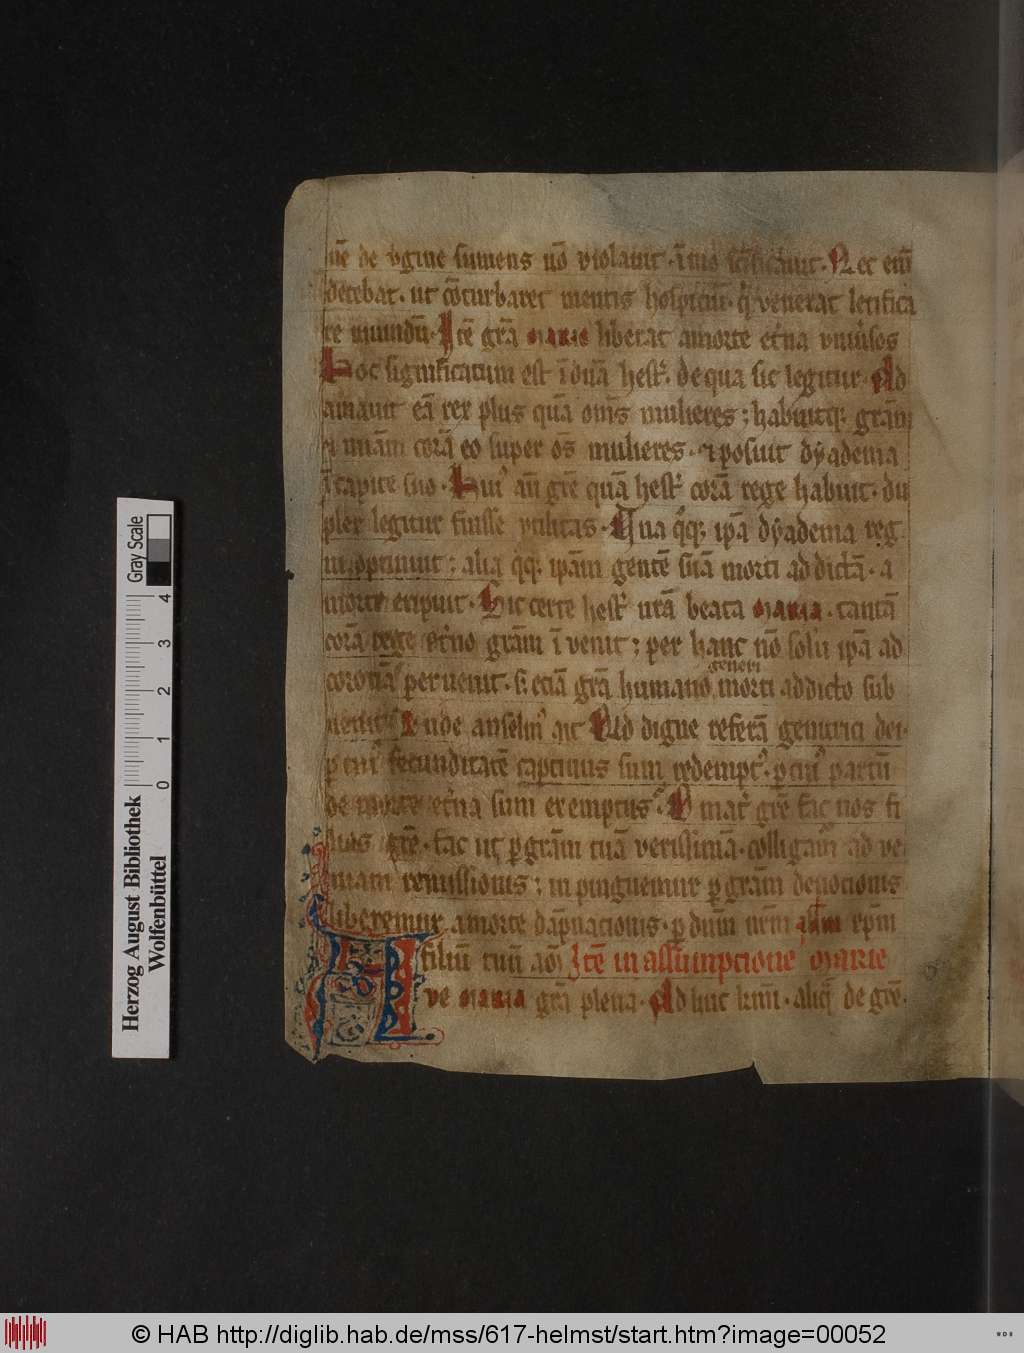 nē de v̾gine sumens nō violauit · īmo sc̄ificauit · Nec em̄
decebat · ut cōturbaret mentis hospiciū · q̇ venerat letifica
re mundū · Itē gr̄a maria liberat amorte et̾na vniu̾sos
Hoc significatum est ī duā hest̾ · de qua sic legitur · Ad
amauit eā rex plus quā om̄s mulieres ; habuitq; grām
⁊ miam̄ corā eo super os̄ mulieres · ⁊ posuit dẏadema
ī capite suo · Hui᾽ aū gr̄e quā hest̾ corā rege habuit · du
plex legitur fuisse vtilitas · Una q̇q; ip̄a dẏadema reg
ni optinuit ; alia q̇q; ipam̄ gentē suā morti addictā · a
morte eripuit · Sic certe hest̾ nr̄a beata maria · tantā
corā rege et̾no grām ī venit ; per hanc nō solū ip̄a ad
coronā peruenit · s; eciā gr̄a humano generi morti addicto sub
uenit · Unde anselm᾽ ait Qd digne referā genitrici dei ·
p cui᾽ fecunditatē captiuus sum redempt᾽ · p cui᾽ partū
de morte et̾na sum exemptus · O mat̾ gr̄e fac nos fi
lios gr̄e · fac ut p grām tuā verissimā · colligam᾽ ad ve
niam remissionis ; inpinguemur p grām deuocionis
liberemur amorte dāpnacionis · p dn̄m nr̄m ih̄m xp̄m
filiū tuū
Itē in assumpcione marie
Aue maria gr̄a plena · Ad huc km̄i · aliq̇ de gr̄e ·
Herzog August Bibliothek
Wolfenbüttel
0 1 2 3 4
Gray Scale
© HAB http://diglib.hab.de/mss/617-helmst/start.htm?image=00052